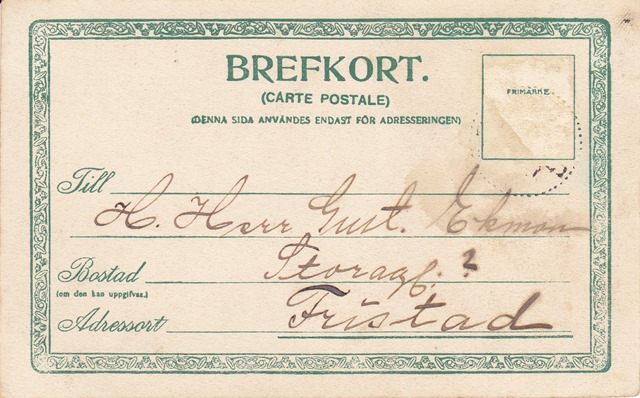 BREFKORT.
(CARTE POSTALE)
(DENNA SIDA ANVÄNDES ENDAST FÖR ADRESSERINGEN)
FRIMÄRKE.
Till
H. Herr Gust. Ekman
Bostad Storag. 2
(om den kan uppgifvas.)
Adressort Fristad